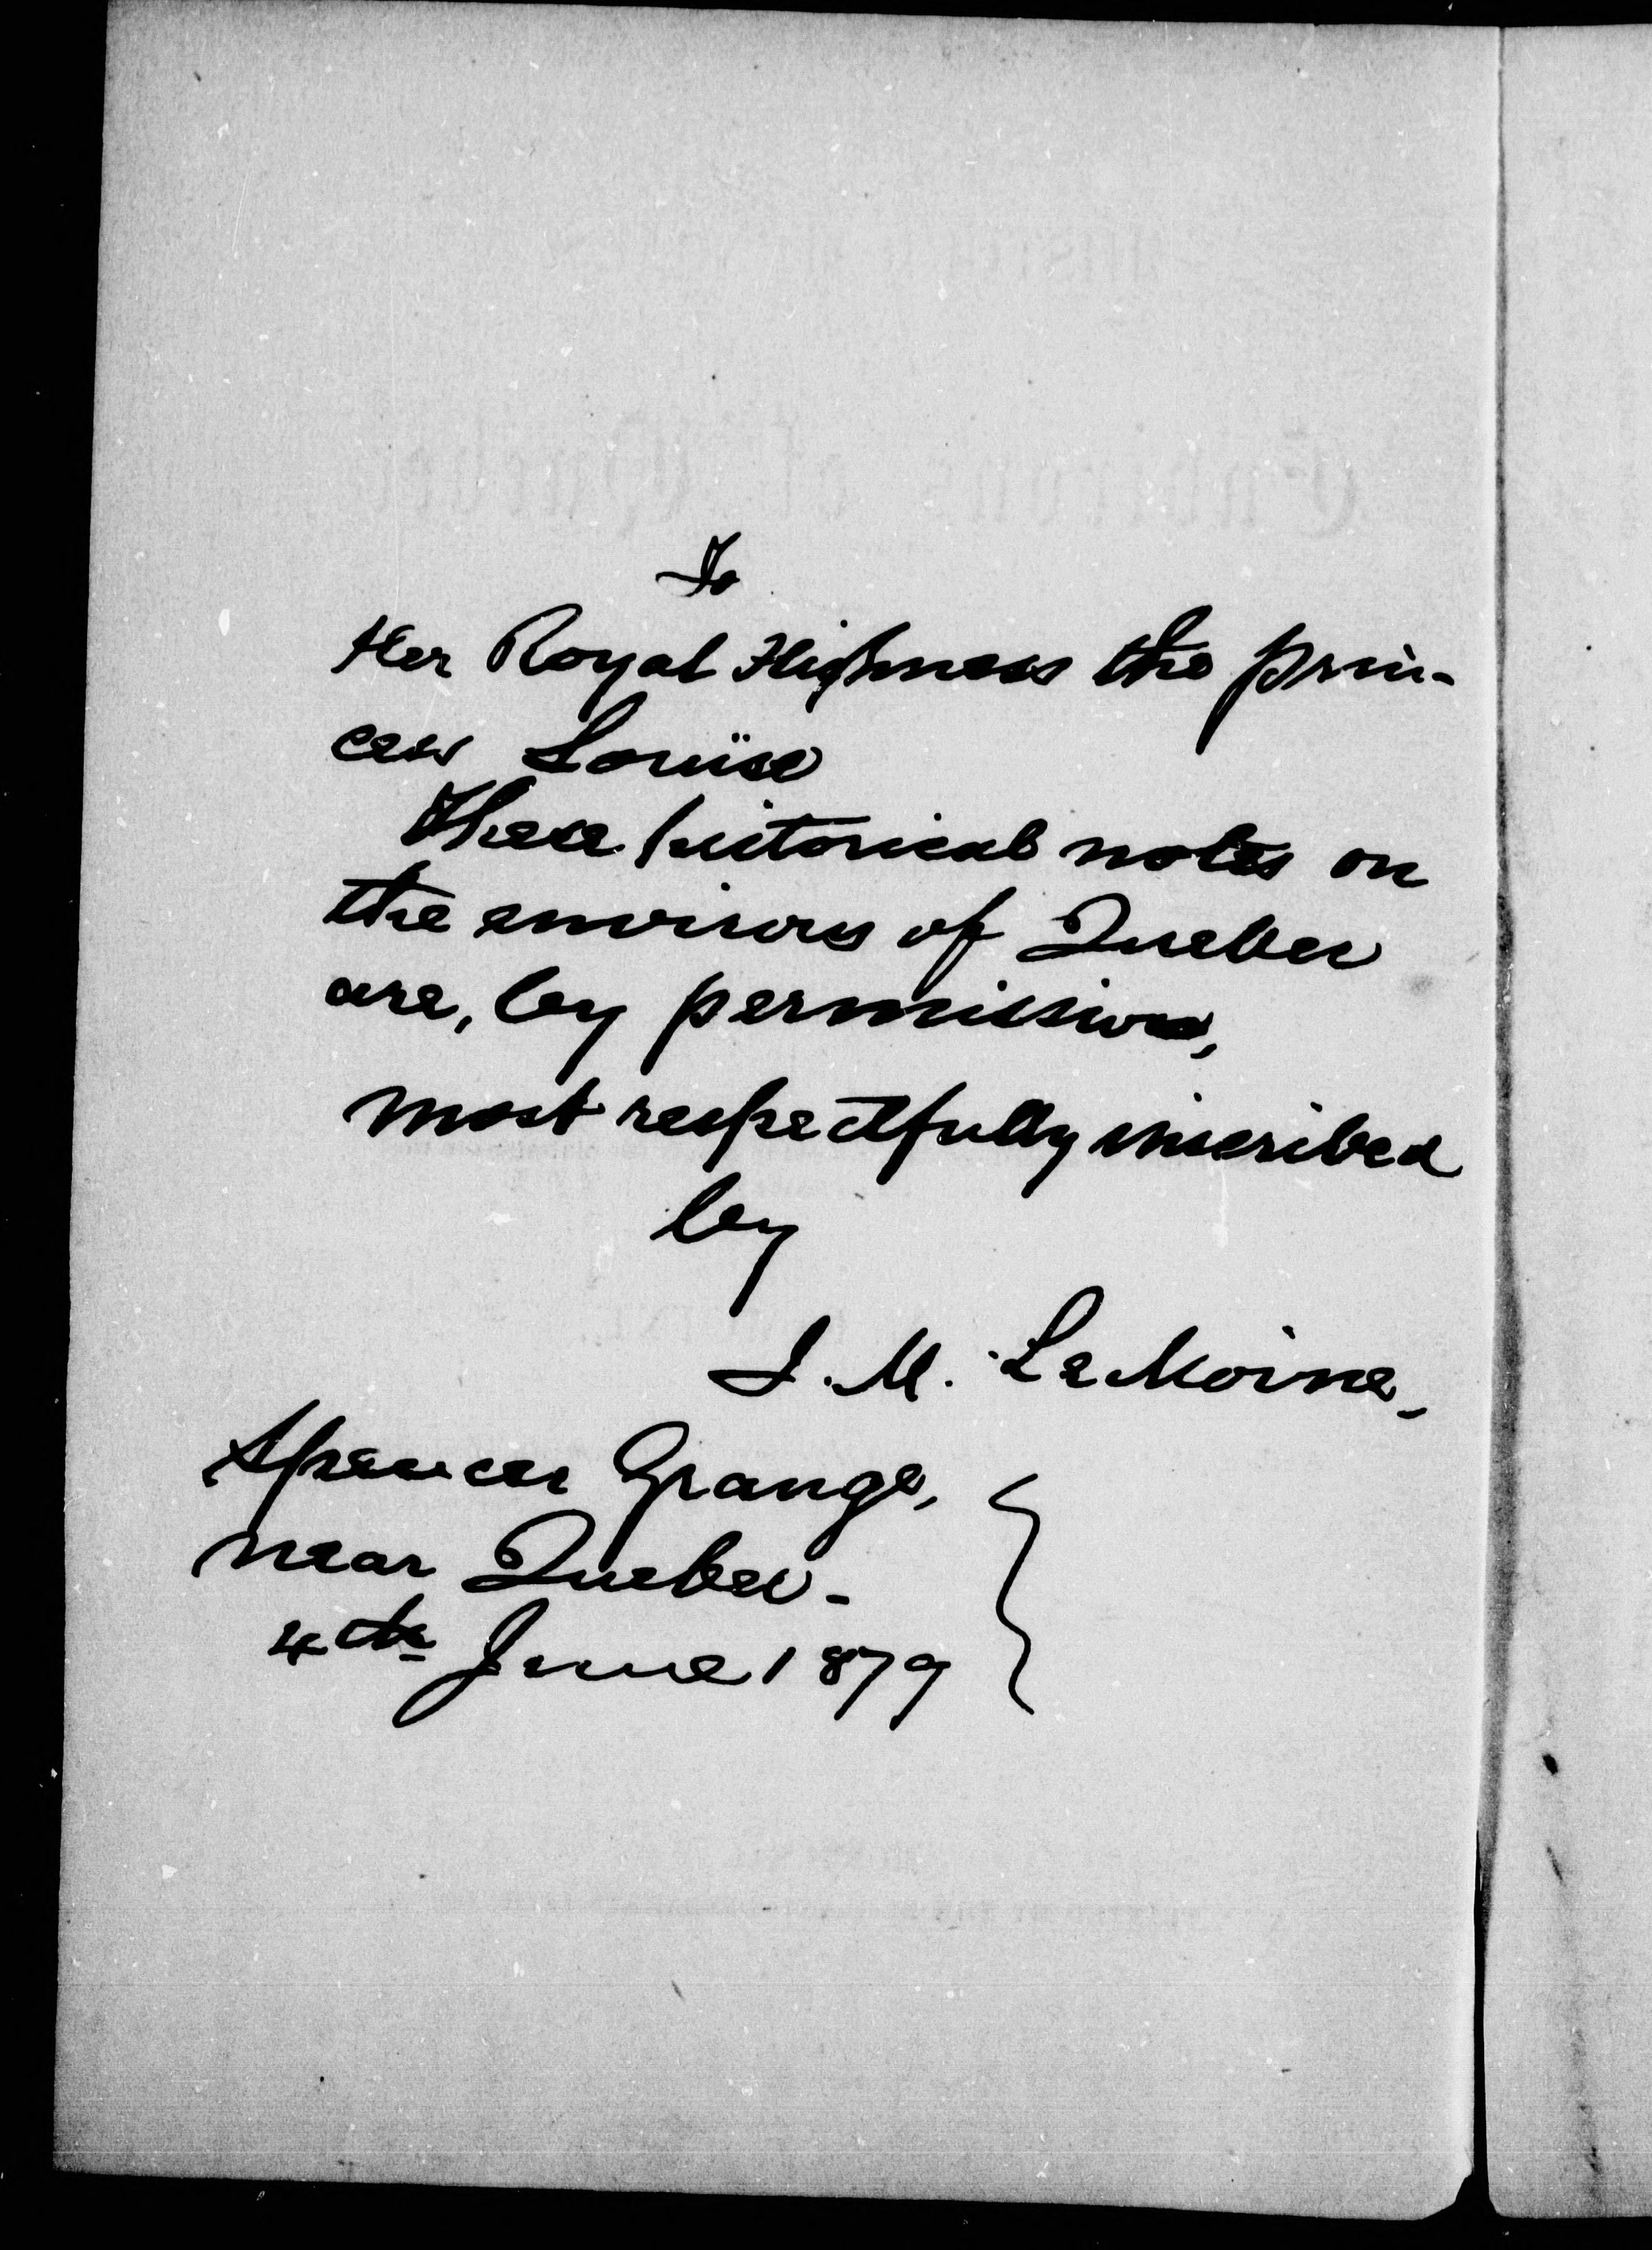 To
Her Royal Highness the prin-
cess Louïse
These historical notes on
the environs of Quebec
are, by permission,
most respectfully inscribed
by
J. M. LeMoine,
Spencer Grange,
near Quebec.
4th June 1879